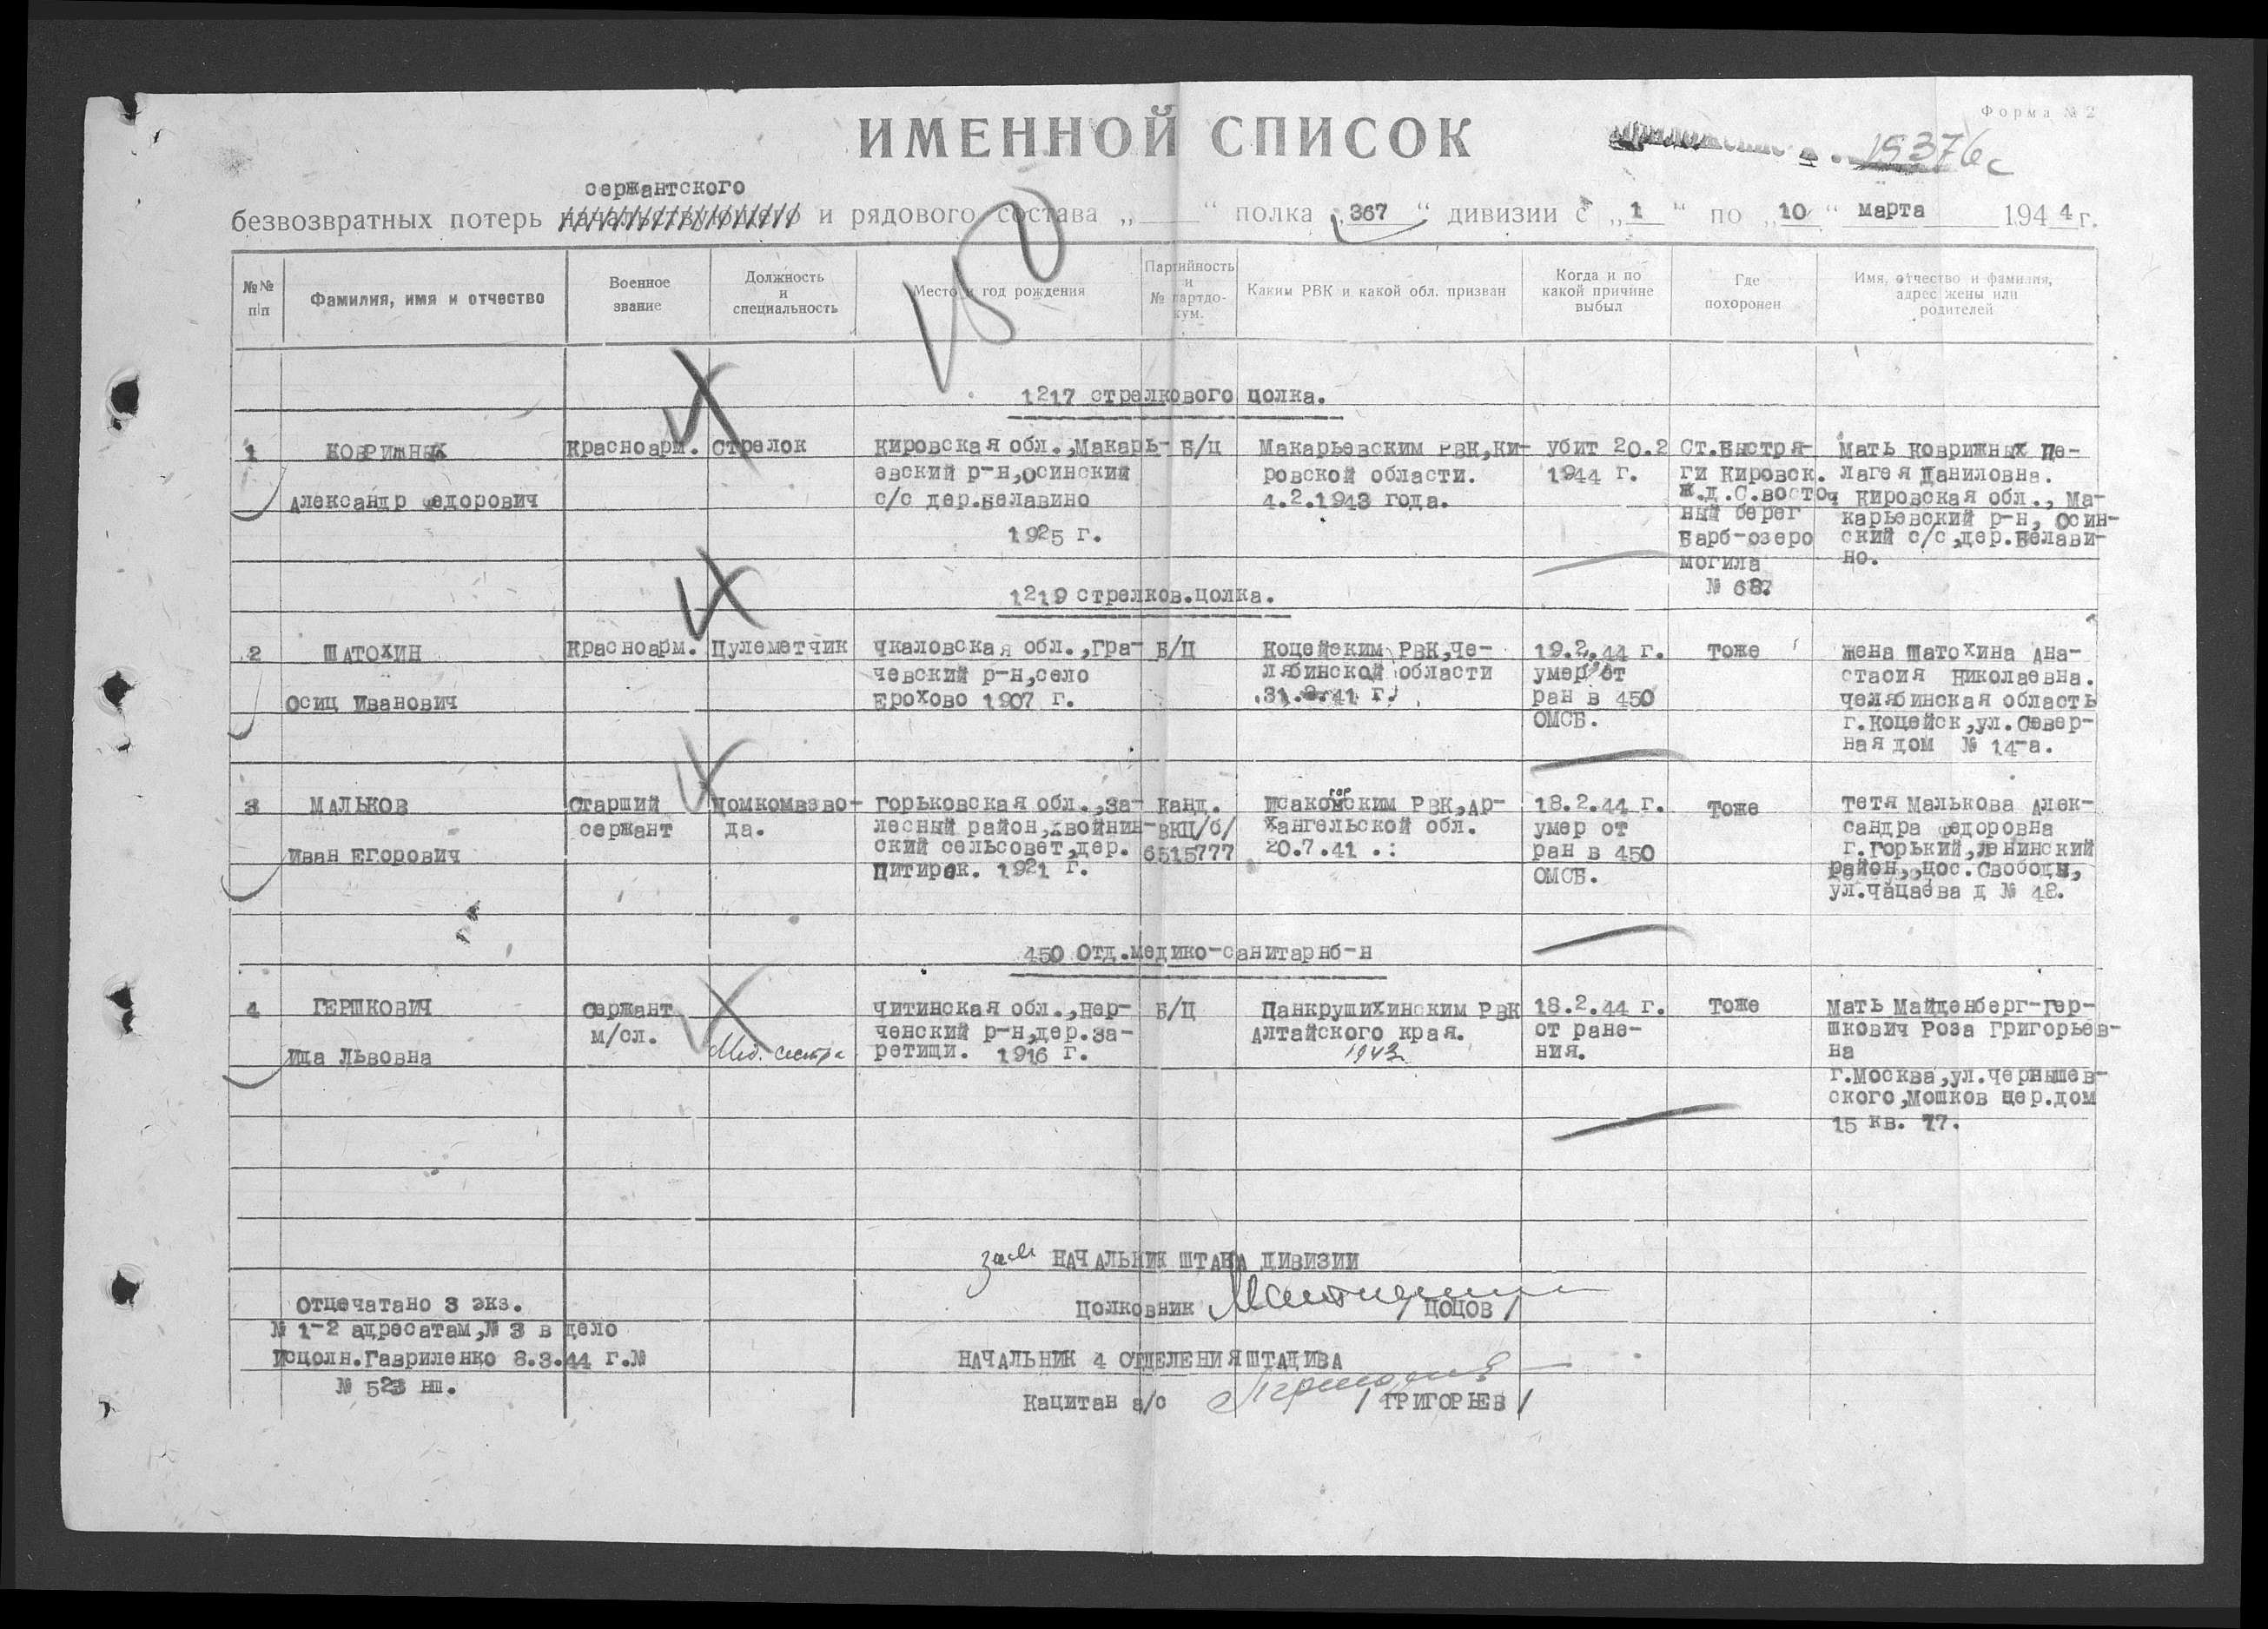 Форма № 2
ИМЕННОЙ СПИСОК
19376с
сержантского
безвозвратных потерь начальствующего и рядового состава „ “ полка „ 367 “ дивизии с „ 1 “ по „ 10 “ марта 1944 г.
№№ п/п
Фамилия, имя и отчество
Военное звание
Должность и специальность
Место и год рождения
Партийность и № партдо-кум.
Каким РВК и какой обл. призван
Когда и по какой причине выбыл
Где похоронен
Имя, отчество и фамилия, адрес жены или родителей
1217 стрелкового полка.
1
КОВРИЖНЫХ
Александр Федорович
Красноарм.
Стрелок
Кировская обл.,Макарь-
евский р-н,Осинский
с/с дер.Белавино
1925 г.
Б/П
Макарьевским РВК,Ки-
ровской области.
4.2.1943 года.
убит 20.2
1944 г.
Ст.Быстря-
ги Кировск.
ж.д.С.восточ
ный берег
Барб-озеро
могила
№ 687
Мать Коврижных Пе-
лагея Даниловна.
Кировская обл., Ма-
карьевский р-н, Осин-
ский с/с,дер.Белави-
но.
1219 стрелков.полка.
2
ШАТОХИН
Осип Иванович
Красноарм.
Пулеметчик
Чкаловская обл.,Гра-
чевский р-н,село
Ерохово 1907 г.
Б/П
Копейским РВК,Че-
лябинской области
31.8.41 г.
19.2.44 г.
умер от
ран в 450
ОМСБ.
Тоже
Жена Шатохина Ана-
стасия Николаевна.
Челябинская область
г.Копейск,ул.Север-
ная дом № 14-а.
3
МАЛЬКОВ
Иван Егорович
Старший
сержант
Помкомвзво-
да.
Горьковская обл.,За-
лесный район,Хвойнин-
ский сельсовет,дер.
Питирек. 1921 г.
Канд.
ВКП/б/
6515777
гор
Исакомским РВК,Ар-
хангельской обл.
20.7.41 .:
18.2.44 г.
умер от
ран в 450
ОМСБ.
Тоже
Тетя Малькова Алек-
сандра Федоровна
г.Горький,Ленинский
район,,пос.Свободы,
ул.Чапаева д № 48.
450 Отд.медико-санитарнб-н
4
ГЕРШКОВИЧ
Ида Львовна
Сержант
м/сл.
Мед. сестра
Читинская обл.,Нер-
ченский р-н,дер.За-
ретищи. 1916 г.
Б/П
Панкрушихинским РВК
Алтайского края.
1943
18.2.44 г.
от ране-
ния.
Тоже
Мать Майденберг-Гер-
шкович Роза Григорьев-
на
г.Москва,ул.Чернышев-
ского,Мошков пер.дом
15 кв. 77.
зам НАЧАЛЬНИК ШТАБА ДИВИЗИИ
Полковник /ПОПОВ/
НАЧАЛЬНИК 4 ОТДЕЛЕНИЯ ШТАДИВА
Капитан а/с /ГРИГОРЬЕВ/
Отпечатано 3 экз.
№ 1-2 адресатам,№ 3 в дело
Исполн.Гавриленко 8.3.44 г.№
№ 523 нш.